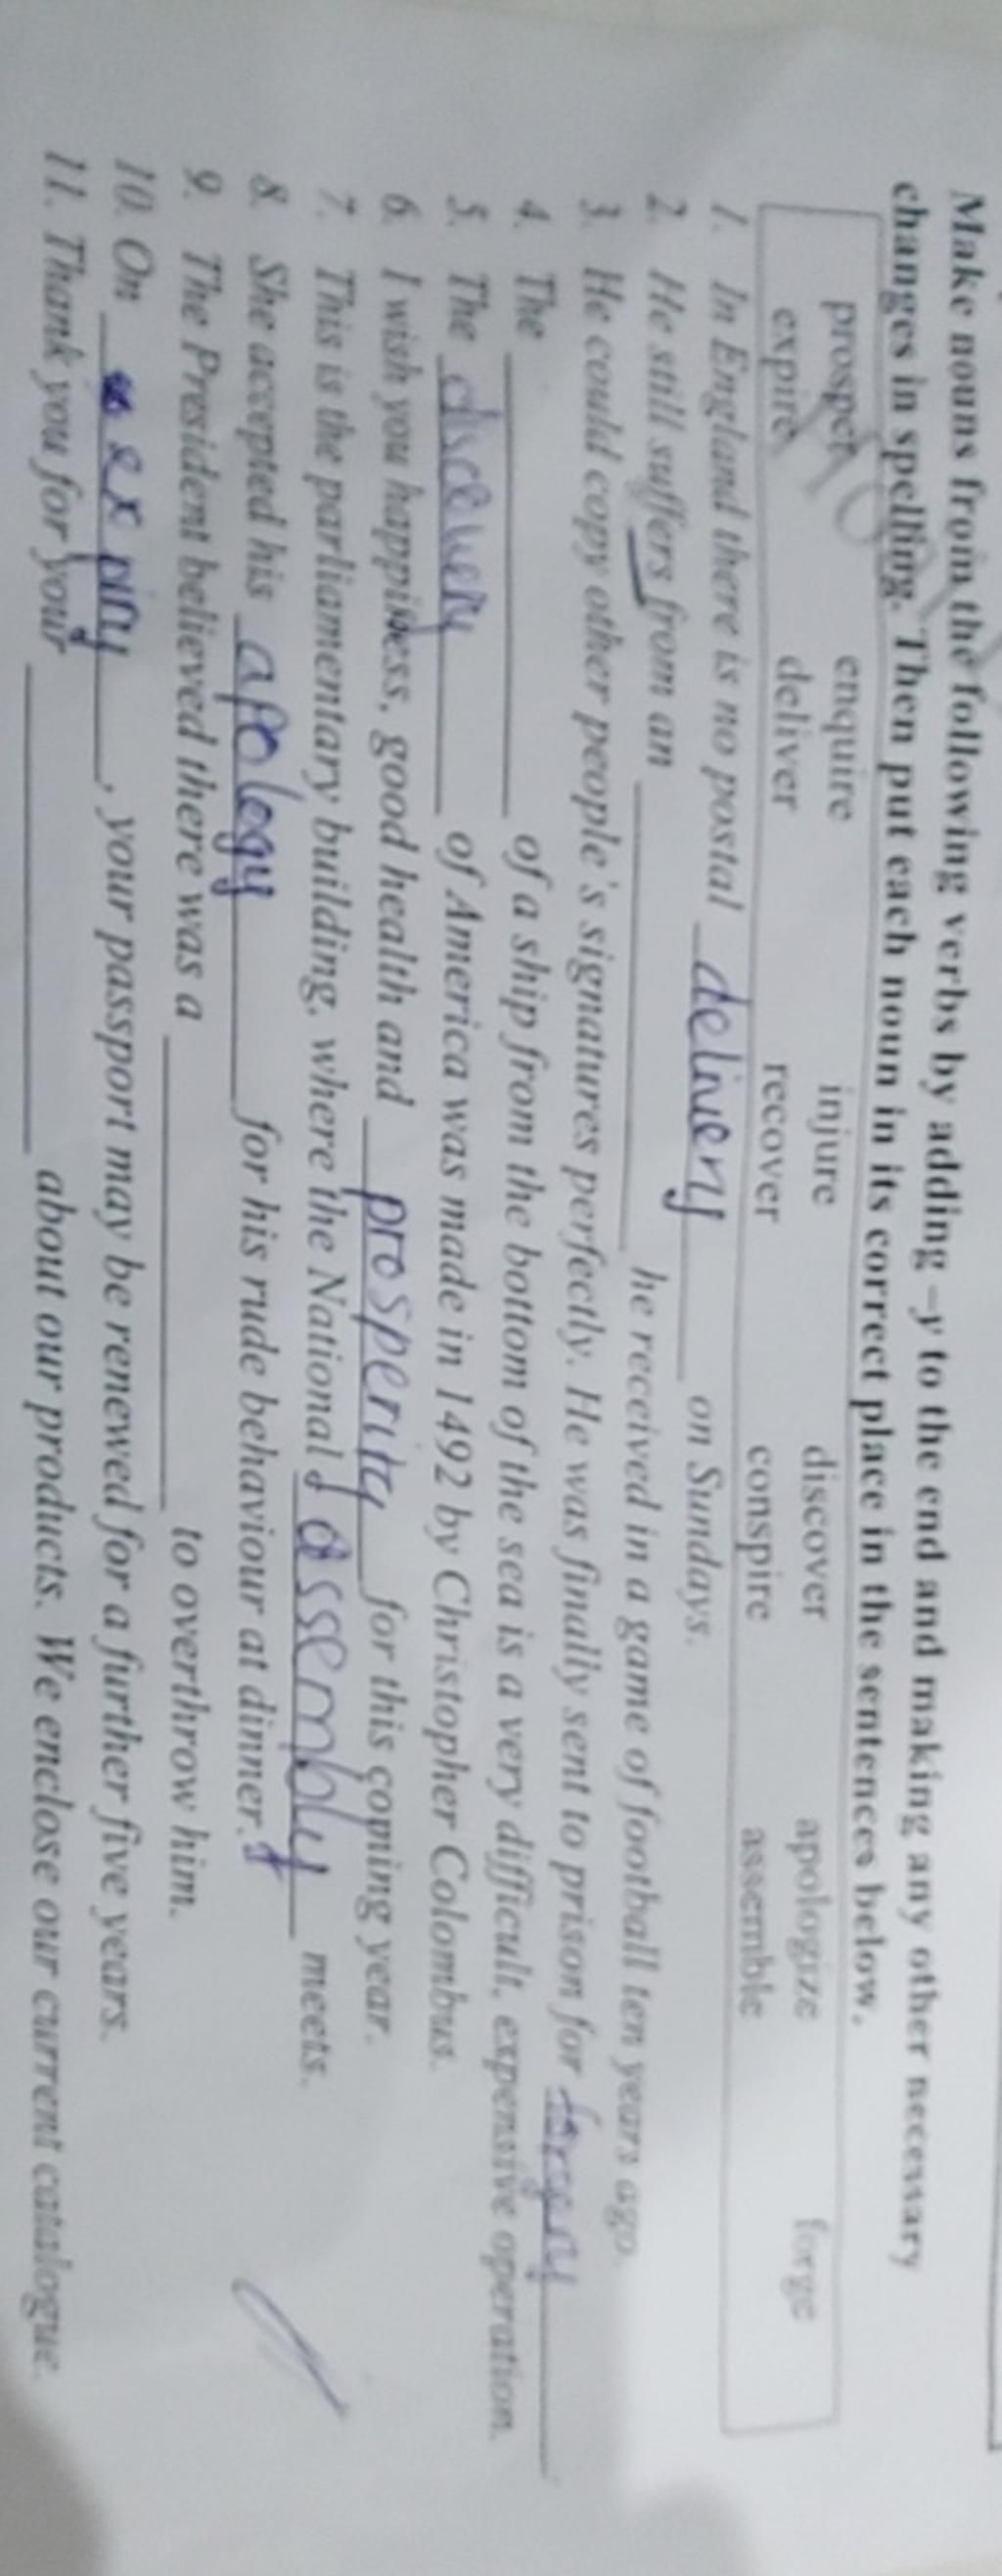 Make nouns from the following verbs by adding –y to the end and making any other necessary
changes in spelling. Then put each noun in its correct place in the sentences below.
prosper enquire injure discover apologize forge
expire deliver recover conspire assemble
1. In England there is no postal delivery on Sundays.
2. He still suffers from an ____________ he received in a game of football ten years ago.
3. He could copy other people's signatures perfectly. He was finally sent to prison for forgery
4. The ____________ of a ship from the bottom of the sea is a very difficult, expensive operation.
5. The discovery of America was made in 1492 by Christopher Colombus.
6. I wish you happiness, good health and prosperity for this coming year.
7. This is the parliamentary building, where the National assembly meets.
8. She accepted his apology for his rude behaviour at dinner.
9. The President believed there was a ____________ to overthrow him.
10. On expiry, your passport may be renewed for a further five years.
11. Thank you for your ____________ about our products. We enclose our current catalogue.